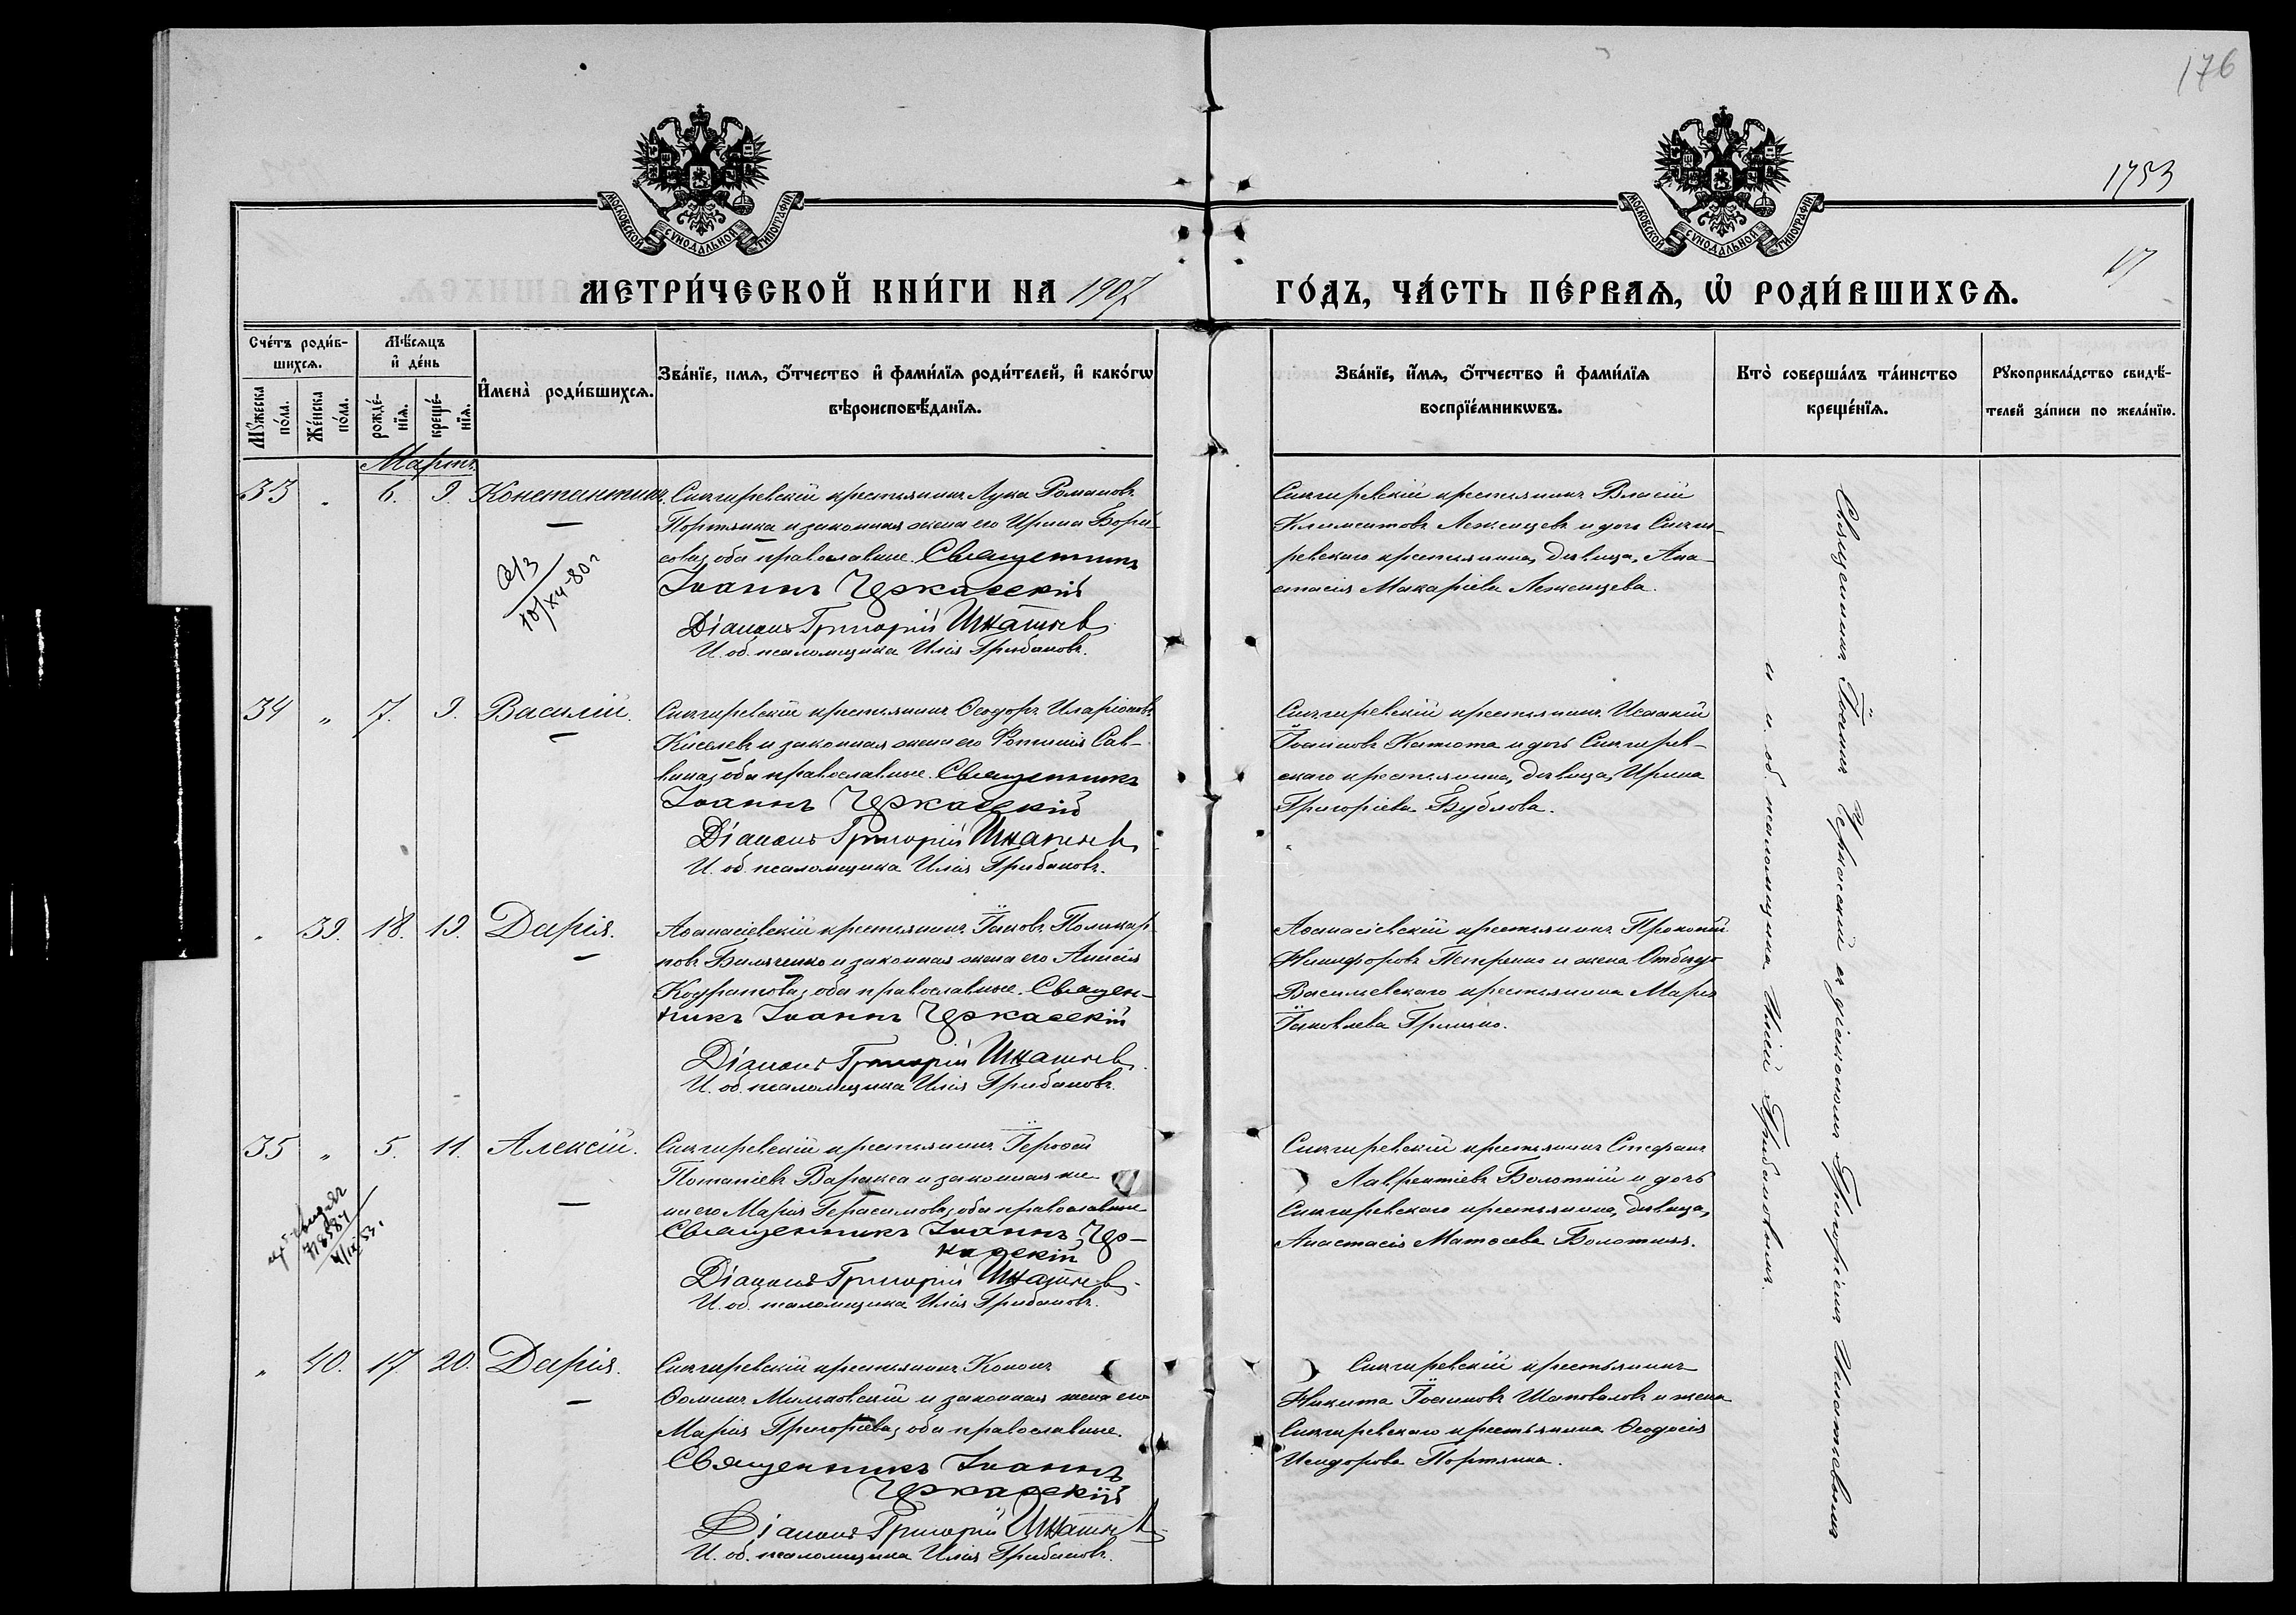 176
1753
17
МОСКОВСКОЙ СѴНОДАЛЬНОЙ ТИПОГРАФІИ
МОСКОВСКОЙ СѴНОДАЛЬНОЙ ТИПОГРАФІИ
МЕТРИ́ЧЕСКОЙ КНИ́ГИ НА 1907 ГО́ДЪ, ЧА́СТЬ ПЕ́РВАѦ, Ѡ҆ РОДИ́ВШИХСѦ.
Сче́тъ роди́в-
шихсѧ.
Мꙋ́жеска
по́ла.
Же́нска
по́ла.
Мѣ́сѧцъ
и҆ де́нь
рожде́-
нїѧ.
креще́-
нїѧ.
И҆мена̀ роди́вшихсѧ.
Зва́нїе, имѧ, ѻ҆́тчество и҆ фами́лїѧ роди́телей, и҆ како́гѡ
вѣроисповѣ́данїѧ.
Зва́нїе, и҆́мѧ, ѻ҆́тчество и҆ фами́лїѧ
воспрїе́мникѡвъ.
Кто̀ соверша́лъ та́инство
креще́нїѧ.
Рꙋкоприкла́дство свидѣ́-
телей за́писи по жела́нїю.
Мартъ
33 „ 6. 9. Константинъ.
Снигиревскій крестьянинъ Лука Романовъ
Портянка и законная жена его Ирина Бори-
сова, оба православные. Священникъ
Іоаннъ Черкасскій
Діаконъ Григорій Игнатьев
И. об. псаломщика Илія Грибановъ.
Снигиревскій крестьянинъ Власій
Климентовъ Леженцевъ и дочь Сниги-
ревскаго крестьянина, девица, Ана-
стасія Макаріева Леженцева.
34 „ 7. 9. Василій.
Снигиревскій крестьянинъ Ѳеодоръ Иларіоновъ
Киселевъ и законная жена его Фотинія Сав-
вина, оба православные. Священникъ
Іоаннъ Черкасскій
Діаконъ Григорій Игнатьев
И. об. псаломщика Илія Грибановъ.
Снигиревскій крестьянинъ Исаакій
Іоанновъ Катюта и дочь Снигирев-
скаго крестьянина, девица, Ирина
Григоріева Бублова.
„ 39. 18. 19. Дарія.
Аѳанасіевскій крестьянинъ Іаковъ Поликар-
повъ Биляченко и законная жена его Анисія
Кодратова, оба православные. Священ-
никъ Іоаннъ Черкасскій
Діаконъ Григорій Игнатьев
И. об. псаломщика Илія Грибановъ.
Аѳанасіевскій крестьянинъ Прокопій
Никифоровъ Петренко и жена
Васильевскаго крестьянина Марія
Іаковлева Гришко.
35 „ 5. 11. Алексій.
Снигиревскій крестьянинъ Іероѳей
Потапіевъ Варакса и законная же-
на его Марія Герасимова, оба православные
Священникъ Іоаннъ Чер-
касскій
Діаконъ Григорій Игнатьев
И. об. псаломщика Илія Грибановъ.
Снигиревскій крестьянинъ Стефанъ
Лаврентіевъ Болотній и дочь
Снигиревскаго крестьянина, девица,
Анастасія Матѳеева Болотняя.
„ 40. 17. 20. Дарія.
Снигиревскій крестьянинъ Кононъ
Ѳоминъ Мильковскій и законная жена его
Марія Григоріева, оба православные.
Священникъ Іоаннъ
Черкасскій
Діаконъ Григорій Игнатьев
И. об. псаломщика Илія Грибановъ.
Снигиревскій крестьянинъ
Никита Іоанновъ Шаповаловъ и жена
Снигиревскаго крестьянина Ѳеодосія
Исидорова Портянка.
Священникъ Іоаннъ Черкасскій съ діакономъ Григоріемъ Игнатьевымъ
и и. об. псаломщика Иліей Грибановымъ.